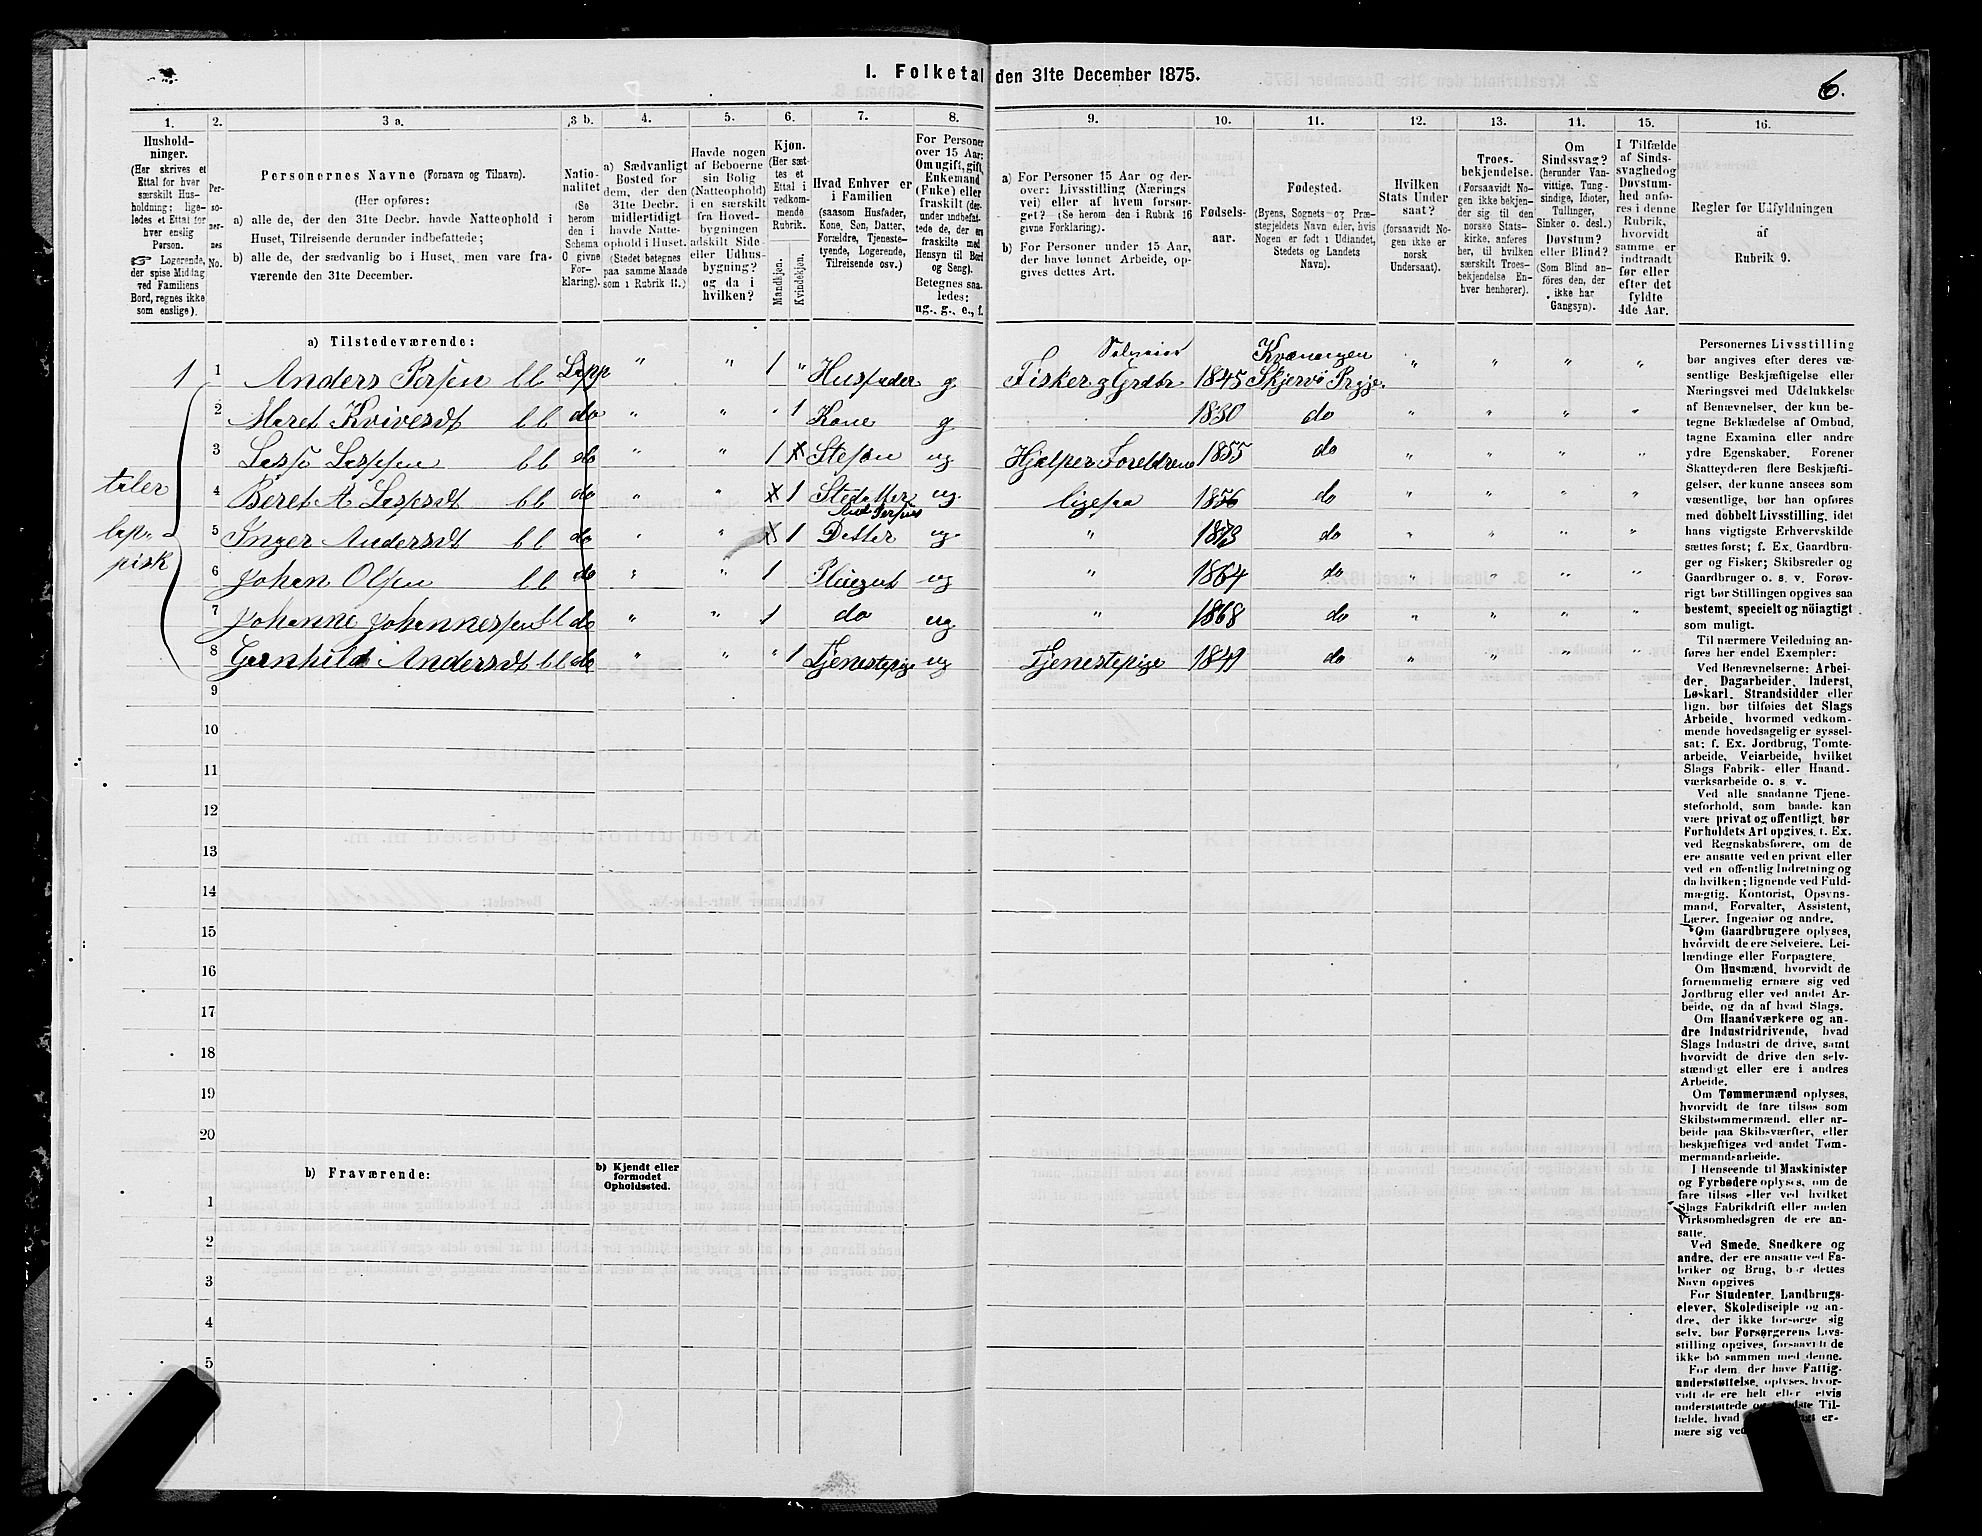 I. Folketal den 31te December 1875.
6.
1.
Hushold-
ninger.
(Her skrives et
Ettal for hver
særskilt Hus-
holdning; lige-
ledes et Ettal for
hver enslig
Person.
☞ Logerende,
der spise Middag
ved Familiens
Bord, regnes ikke
som enslige).
2.
Per-
so-
ner-
nes
No.
3 a.
Personernes Navne (Fornavn og Tilnavn).
(Her opføres:
a) alle de, der den 31te Decbr. havde Natteophold i
Huset, Tilreisende derunder indbefattede;
b) alle de, der sædvanlig bo i Huset, men vare fra-
værende den 31te December.
3 b.
Natio-
nalitet
(Se
herom
den i
Schema
C givne
For-
klaring).
4.
a) Sædvanligt
Bosted for
dem, der den
31te Decbr.
midlertidigt
havde Natte-
ophold i Huset.
(Stedet betegnes
paa samme Maade
som i Rubrik 11.)
5.
Havde nogen
af Beboerne
sin Bolig
(Natteophold)
i en særskilt
fra Hoved-
bygningen
adskilt Side-
eller Udhus-
bygning?
og da i
hvilken?
6.
Kjøn.
(Her sæt-
tes et
Ettal i
vedkom-
mende
Rubrik.
Mandkjøn.
Kvindekjøn.
7.
Hvad Enhver er
i Familien
(saasom Husfader,
Kone, Søn, Datter,
Forældre, Tjeneste-
tyende, Logerende,
Tilreisende osv.)
8.
For Personer
over 15 Aar:
Om ugift, gift,
Enkemand
(Fuke) eller
fraskilt (der-
under indbefat-
tede de, der ere
fraskilte med
Hensyn til Bord
og Seng).
Betegnes saa-
ledes:
ug., g., e., f.
9.
a) For Personer 15 Aar og der-
over: Livsstilling (Nærings-
vei) eller af hvem forsør-
get? (Se herom den i Rubrik 16
givne Forklaring).
b) For Personer under 15 Aar,
der have lønnet Arbeide, op-
gives dettes Art.
10.
Fødsels-
aar.
11.
Fødested.
(Byens, Sognets og Præ-
stegjeldets Navn eller, hvis
Nogen er født i Udlandet,
Stedets og Landets
Navn).
12.
Hvilken
Stats Under
saat?
(forsaavidt No-
gen ikke er
norsk
Undersaat).
13.
Troes-
bekjendelse.
(Forsaavidt No-
gen ikke bekjen-
der sig til den
norske Stats-
kirke, anføres
her, til hvilken
særskilt Troes-
bekjendelse En-
hver henhører).
14.
Om
Sindssvag?
(herunder Van-
vittige, Tung-
sindige, Idioter,
Tullinger,
Sinker o. desl.)
Døvstum?
eller Blind?
(Som Blind an-
føres den, der
ikke har
Gangsyn).
15.
I Tilfælde
af Sinds-
svaghed og
Døvstum-
hed anfø-
res i denne
Rubrik,
hvorvidt
samme er
indtraadt
før eller
efter det
fyldte
4de Aar.
16.
Regler for Udfyldningen
af
Rubrik 9.
a) Tilstedeværende:
1 1 Anders Persen bb Lapp " " 1 " Husfader g Fisker og Grdbr Selveier 1845 Kvænangen Skjervø Prgje. " " " "
2 Maret Kvivesdt bb do " " " 1 Kone g 1830 do " " " "
3 bb do " " 1 Stesøn ug Hjælper Foreldrene 1855 do " " " "
4 Beret bb do " " 1 Stedatter ug ligesaa 1856 do " " " "
And Persens
5 Inger Andersdt bb do " " 1 Datter ug " 1873 do " " " "
6 Johan Olsen bb do " " 1 Pliegest ug " 1864 do " " " "
7 Johanne Johannessen bb do " " 1 do ug " 1868 do " " " "
8 Gunhild Andersdt bb do " " " 1 Tjenestepige ug Tjenestepige 1849 do " " " "
taler
lap-
pisk
9
10
11
12
13
14
15
16
17
18
19
20
b) Fraværende:
b) Kjendt eller
formodet
Opholdssted.
1
2
3
4
5
Personernes Livsstilling
bør angives efter deres væ-
sentlige Beskjæftigelse eller
Næringsvei med Udelukkelse
af Benævnelser, der kun be-
tegne Beklædelse af Ombud,
tagne Examina eller andre
ydre Egenskaber. Forener
Skatteyderen flere Beskjæfti-
gelser, der kunne ansees som
væsentlige, bør han opføres
med dobbelt Livsstilling, idet
hans vigtigste Erhvervskilde
sættes først; f. Ex. Gaardbru-
ger og Fisker; Skibsreder og
Gaardbruger o. s. v. Forøv-
rigt bør Stillingen opgives saa
bestemt, specielt og nöiagtigt
som muligt.
Til nærmere Veiledning an-
føres her endel Exempler:
Ved Benævnelserne: Arbei-
der, Dagarbeider, Inderst,
Løskarl, Strandsidder eller
lign. bør tilføies det Slags
Arbeide, hvormed vedkom-
mende hovedsagelig er syssel-
sat; f. Ex. Jordbrug, Tomte-
arbeide, Veiarbeide, hvilket
Slags Fabrik- eller Haand-
værksarbeide o. s. v.
Ved alle saadanne Tjene-
steforhold, som baade kan
være privat og offentligt, bør
Forholdets Art opgives, t. Ex.
ved Regnskabsførere, om de
ere ansatte ved en privat eller
ved en offentlig Indretning og
da hvilken; lignende ved Fuld-
mægtig, Kontorist, Opsyns-
mand, Forvalter, Assistent,
Lærer, Ingeniør og andre.
Om Gaardbrugere oplyses,
hvorvidt de ere Selveiere, Lei-
lændinge eller Forpagtere.
Om Husmænd, hvorvidt de
fornemmelig ernære sig ved
Jordbrug eller ved andet Ar-
beide, og da af hvad Slags.
Om Haandværkere og an-
dre Industridrivende, hvad
Slags Industri de drive, samt
hvorvidt de drive den selv-
stændigt eller ere i andres
Arbeide.
Om Tømmermænd oplyses,
hvorvidt de fare tilsøs som
Skibstømmermænd, eller ar-
beide paa Skibsværfter, eller
beskjæftiges ved andet Tøm-
mermandsarbeide.
I Henseende til Maskinister
og Fyrbødere oplyses, om de
fare tilsøs eller ved hvilket
Slags Fabrikdrift eller anden
Virksomhedsgren de ere an-
satte.
Ved Smede, Snedkere og
andre, der ere ansatte ved Fa-
briker og Brug, bør dettes
Navn opgives
For Studenter, Landbrugs-
elever, Skoledisciple og an-
dre, der ikke forsørge sig
selv, bør Forsørgerens Livs-
stilling opgives, forsaavidt de
ikke bo sammen med denne.
For dem, der have Fattig-
understøttelse, oplyses, hvor-
vidt de ere helt eller delvis
understøttede og
fælde, hvad
nære sig ved